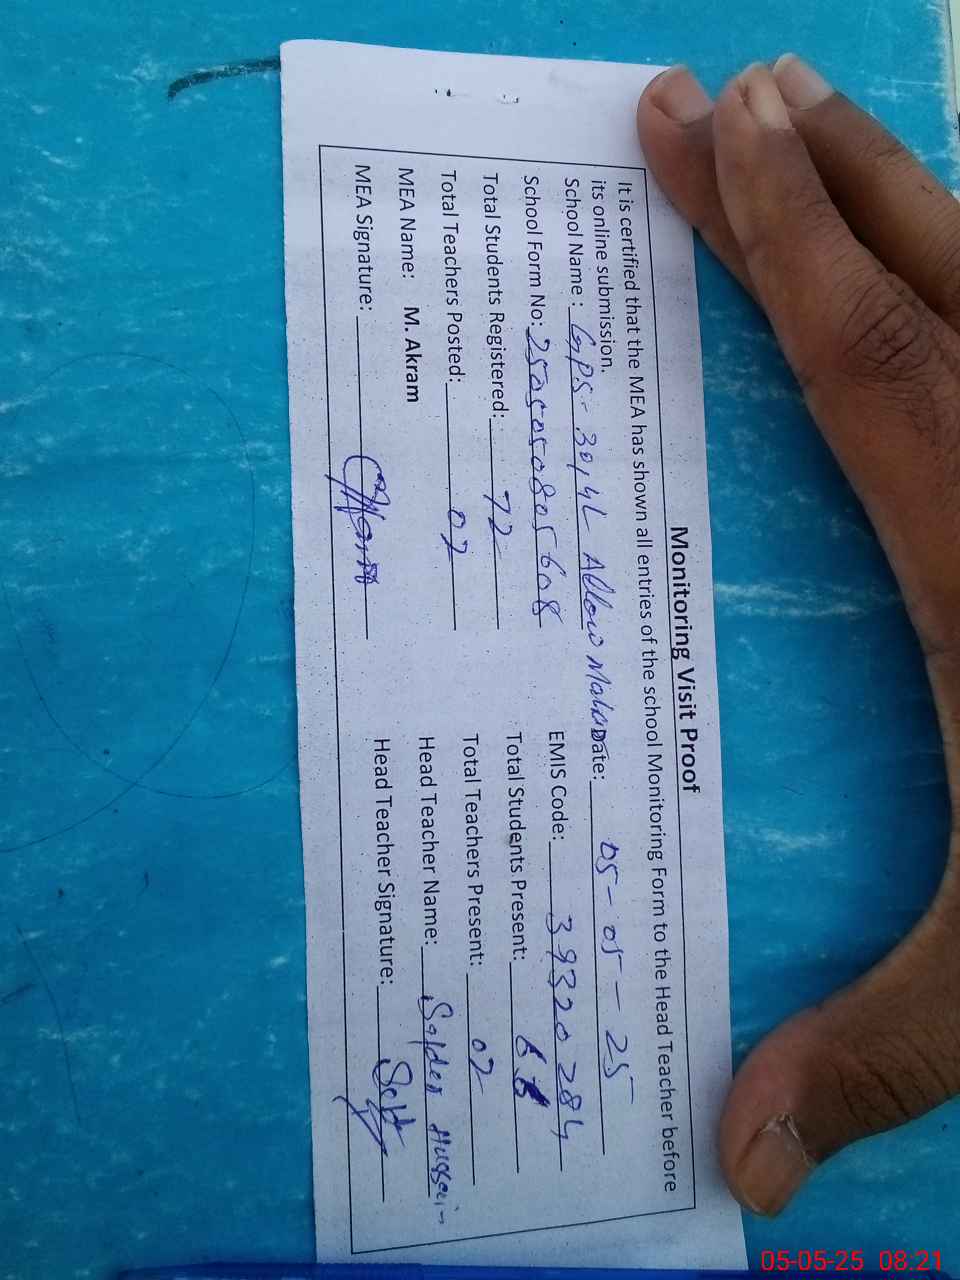 Monitoring Visit Proof
It is certified that the MEA has shown all entries of the school Monitoring Form to the Head Teacher before
its online submission.
School Name : GPS- 30/4L Date: 05-05-25
School Form No: 2505050805608 EMIS Code: 39320284
Total Students Registered: 72 Total Students Present:
Total Teachers Posted: 02 Total Teachers Present: 02
MEA Name: M. Akram Head Teacher Name: Hussain
MEA Signature: Head Teacher Signature:
05-05-25 08:21